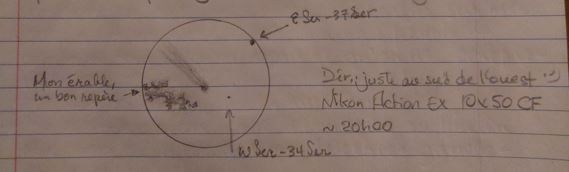 ε Ser - 37 Ser
Mon érable,
un bon repère
Dir.: juste au sud de l'ouest
Nikon Action Ex 10x50 CF
~ 20h00
ω Ser - 34 Ser